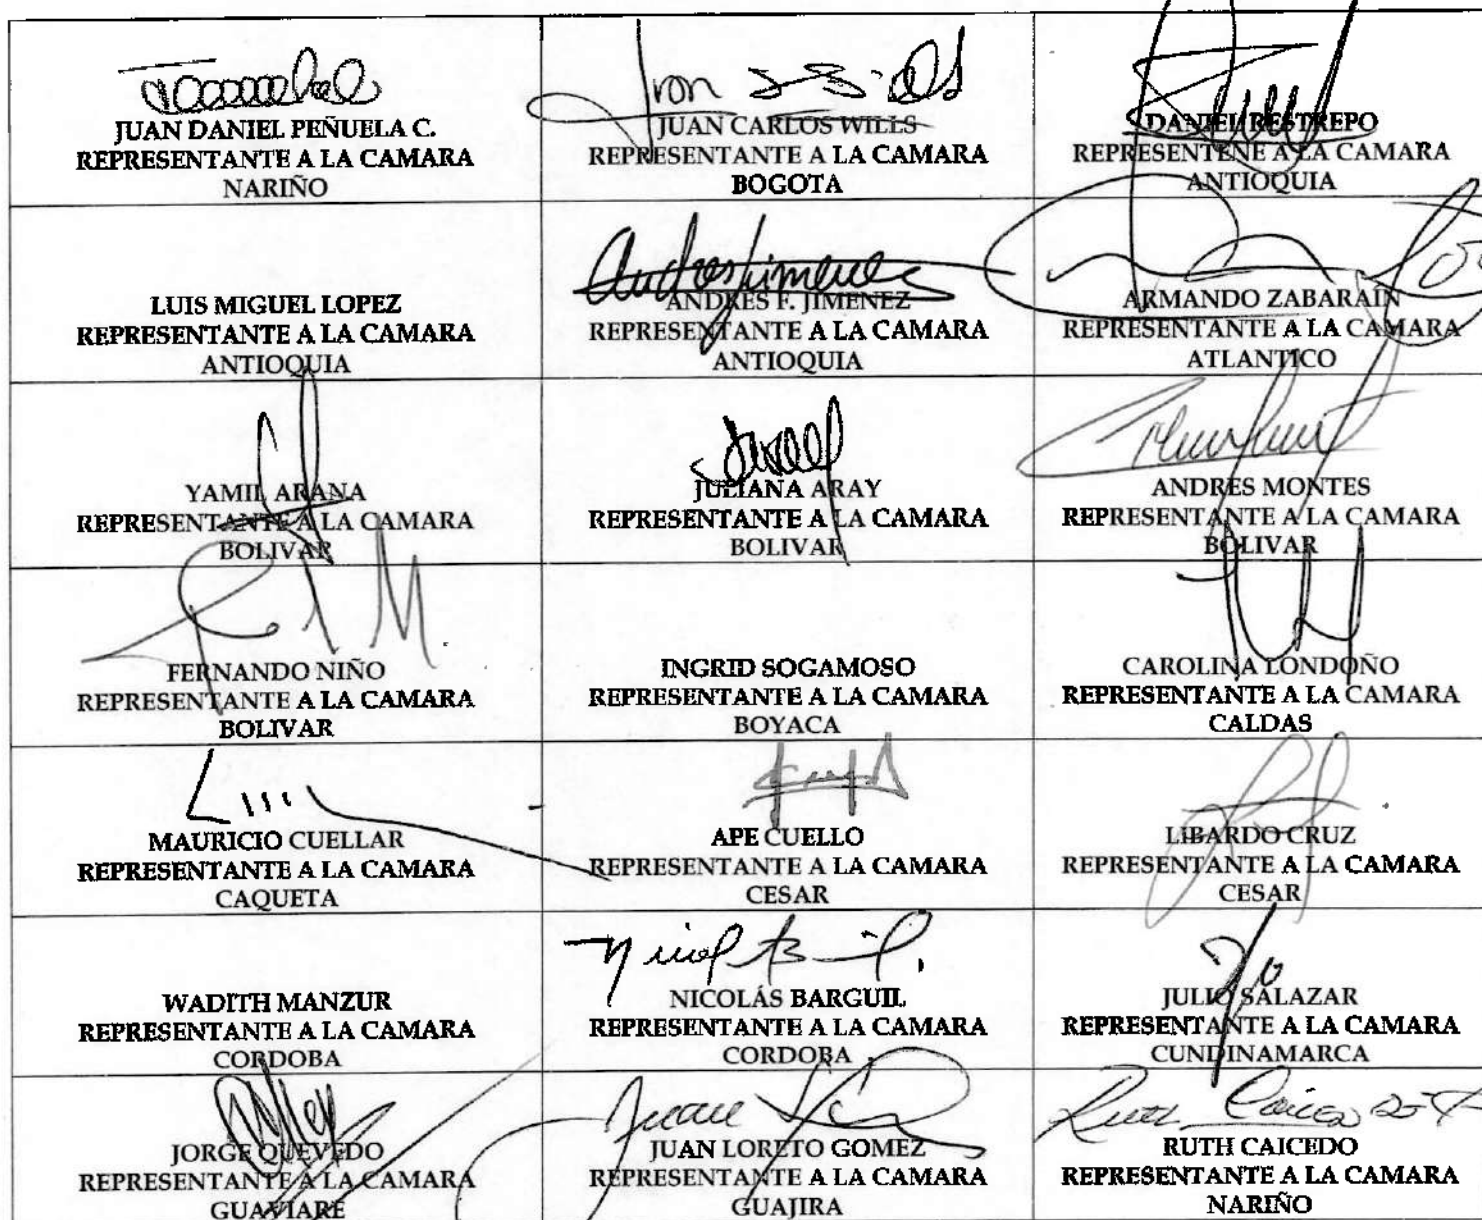 JUAN DANIEL PEÑUELA C.
REPRESENTANTE A LA CAMARA
NARIÑO
JUAN CARLOS WILLS
REPRESENTANTE A LA CAMARA
BOGOTA
DANIEL RESTREPO
REPRESENTENE A LA CAMARA
ANTIOQUIA
LUIS MIGUEL LOPEZ
REPRESENTANTE A LA CAMARA
ANTIOQUIA
Andres Jimenez
ANDRES F. JIMENEZ
REPRESENTANTE A LA CAMARA
ANTIOQUIA
ARMANDO ZABARAIN
REPRESENTANTE A LA CAMARA
ATLANTICO
YAMIL ARANA
REPRESENTANTE A LA CAMARA
BOLIVAR
JULIANA ARAY
REPRESENTANTE A LA CAMARA
BOLIVAR
ANDRES MONTES
REPRESENTANTE A LA CAMARA
BOLIVAR
FERNANDO NIÑO
REPRESENTANTE A LA CAMARA
BOLIVAR
INGRID SOGAMOSO
REPRESENTANTE A LA CAMARA
BOYACA
CAROLINA LONDOÑO
REPRESENTANTE A LA CAMARA
CALDAS
MAURICIO CUELLAR
REPRESENTANTE A LA CAMARA
CAQUETA
APE CUELLO
REPRESENTANTE A LA CAMARA
CESAR
LIBARDO CRUZ
REPRESENTANTE A LA CAMARA
CESAR
WADITH MANZUR
REPRESENTANTE A LA CAMARA
CORDOBA
NICOLÁS BARGUIL
REPRESENTANTE A LA CAMARA
CORDOBA
JULIO SALAZAR
REPRESENTANTE A LA CAMARA
CUNDINAMARCA
JORGE QUEVEDO
REPRESENTANTE A LA CAMARA
GUAVIARE
JUAN LORETO GOMEZ
REPRESENTANTE A LA CAMARA
GUAJIRA
Ruth Caicedo
RUTH CAICEDO
REPRESENTANTE A LA CAMARA
NARIÑO